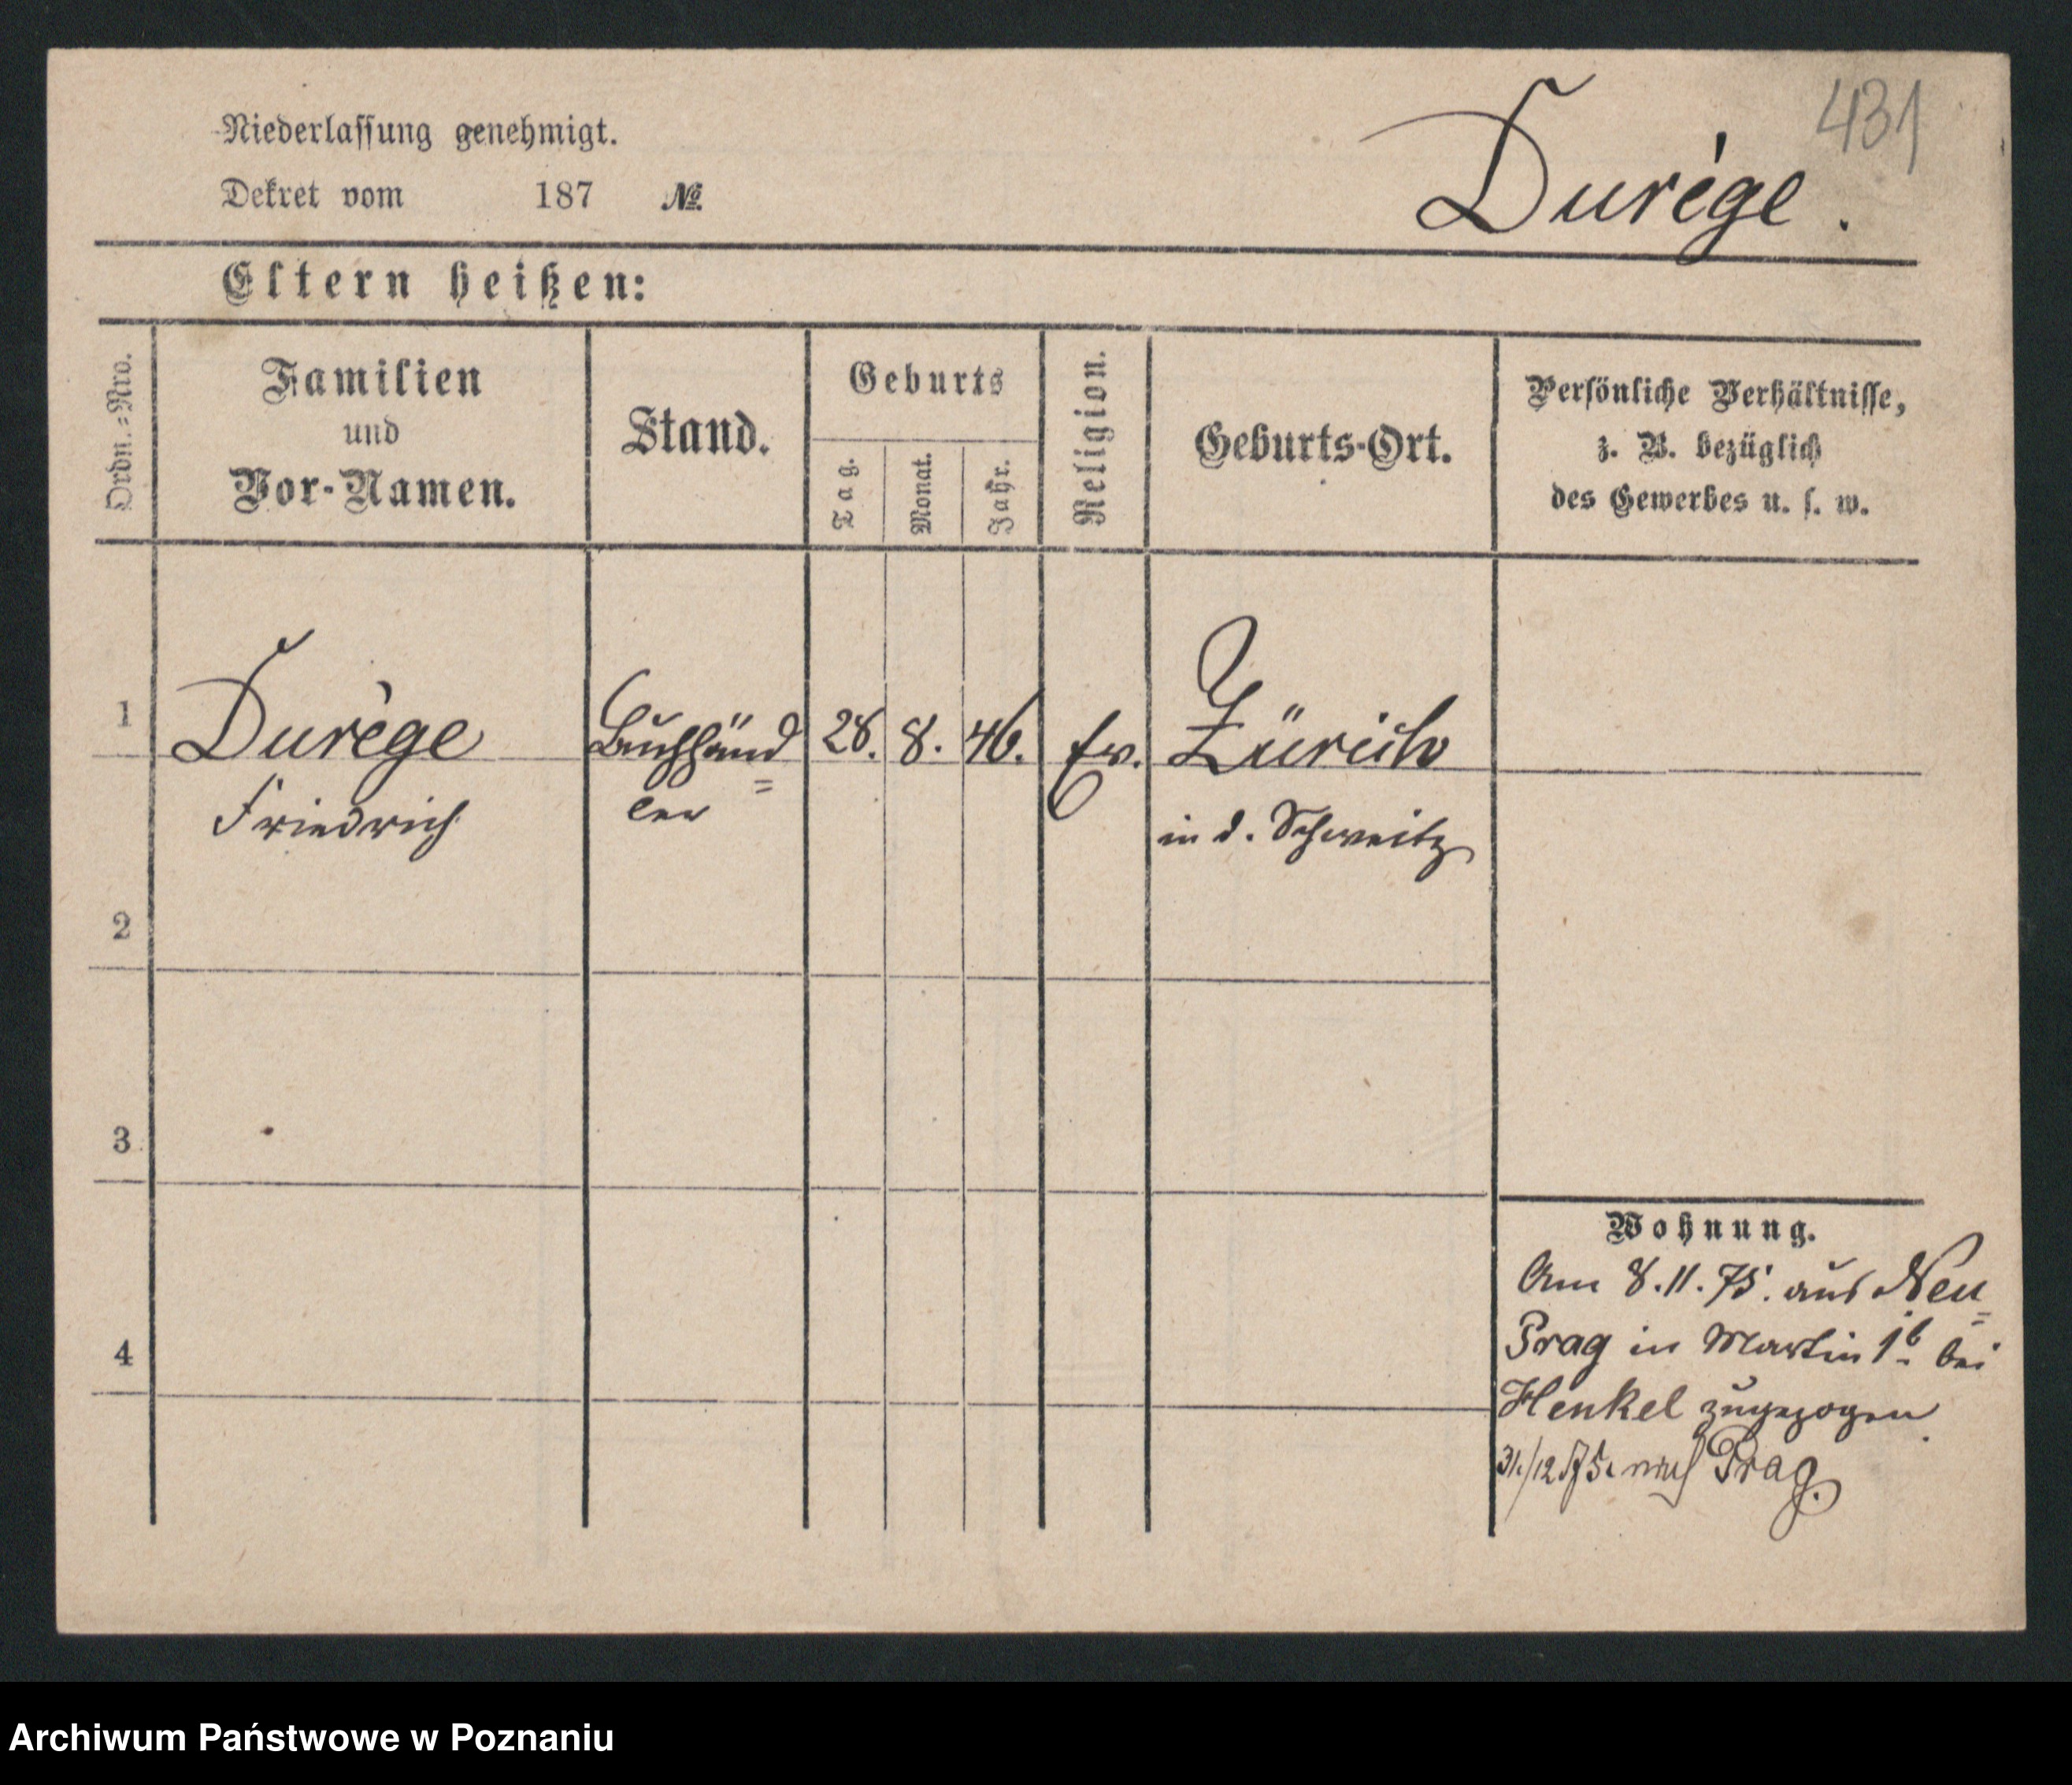 431
Niederlassung genehmigt.
Durège.
Dekret vom 187 №
Eltern heißen:
Ordn.-Nro.
Familien
und
Vor-Namen.
Stand.
Geburts
Tag.
Monat.
Jahr.
Religion.
Geburts-Ort.
Persönliche Verhältnisse,
z. B. bezüglich
des Gewerbes u. s. w.
1 Durège Buchhänd= 28. 8. 46. Ev. Zürich
Friedrich ler in d. Schweitz
2
3
4
Wohnung.
Am 8.11.75. aus Neu=
Prag in Martin 1b bei
Henkel zugezogen.
31./12 75. nach Prag.
Archiwum Państwowe w Poznaniu